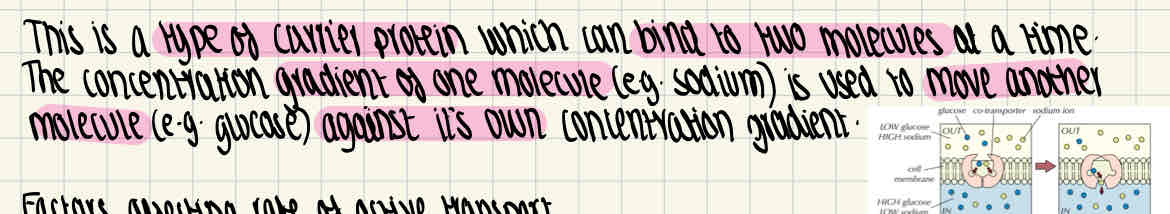 This is a type of carrier protein which can bind to two molecules at a time.
The concentration gradient of one molecule (e.g. sodium) is used to move another
molecule (e.g. glucose) against it's own concentration gradient.
glucose co-transporter sodium ion
LOW glucose
HIGH sodium
OUT
OUT
cell
membrane
HIGH glucose
LOW sodium
IN
IN
Factors affecting rate of active transport